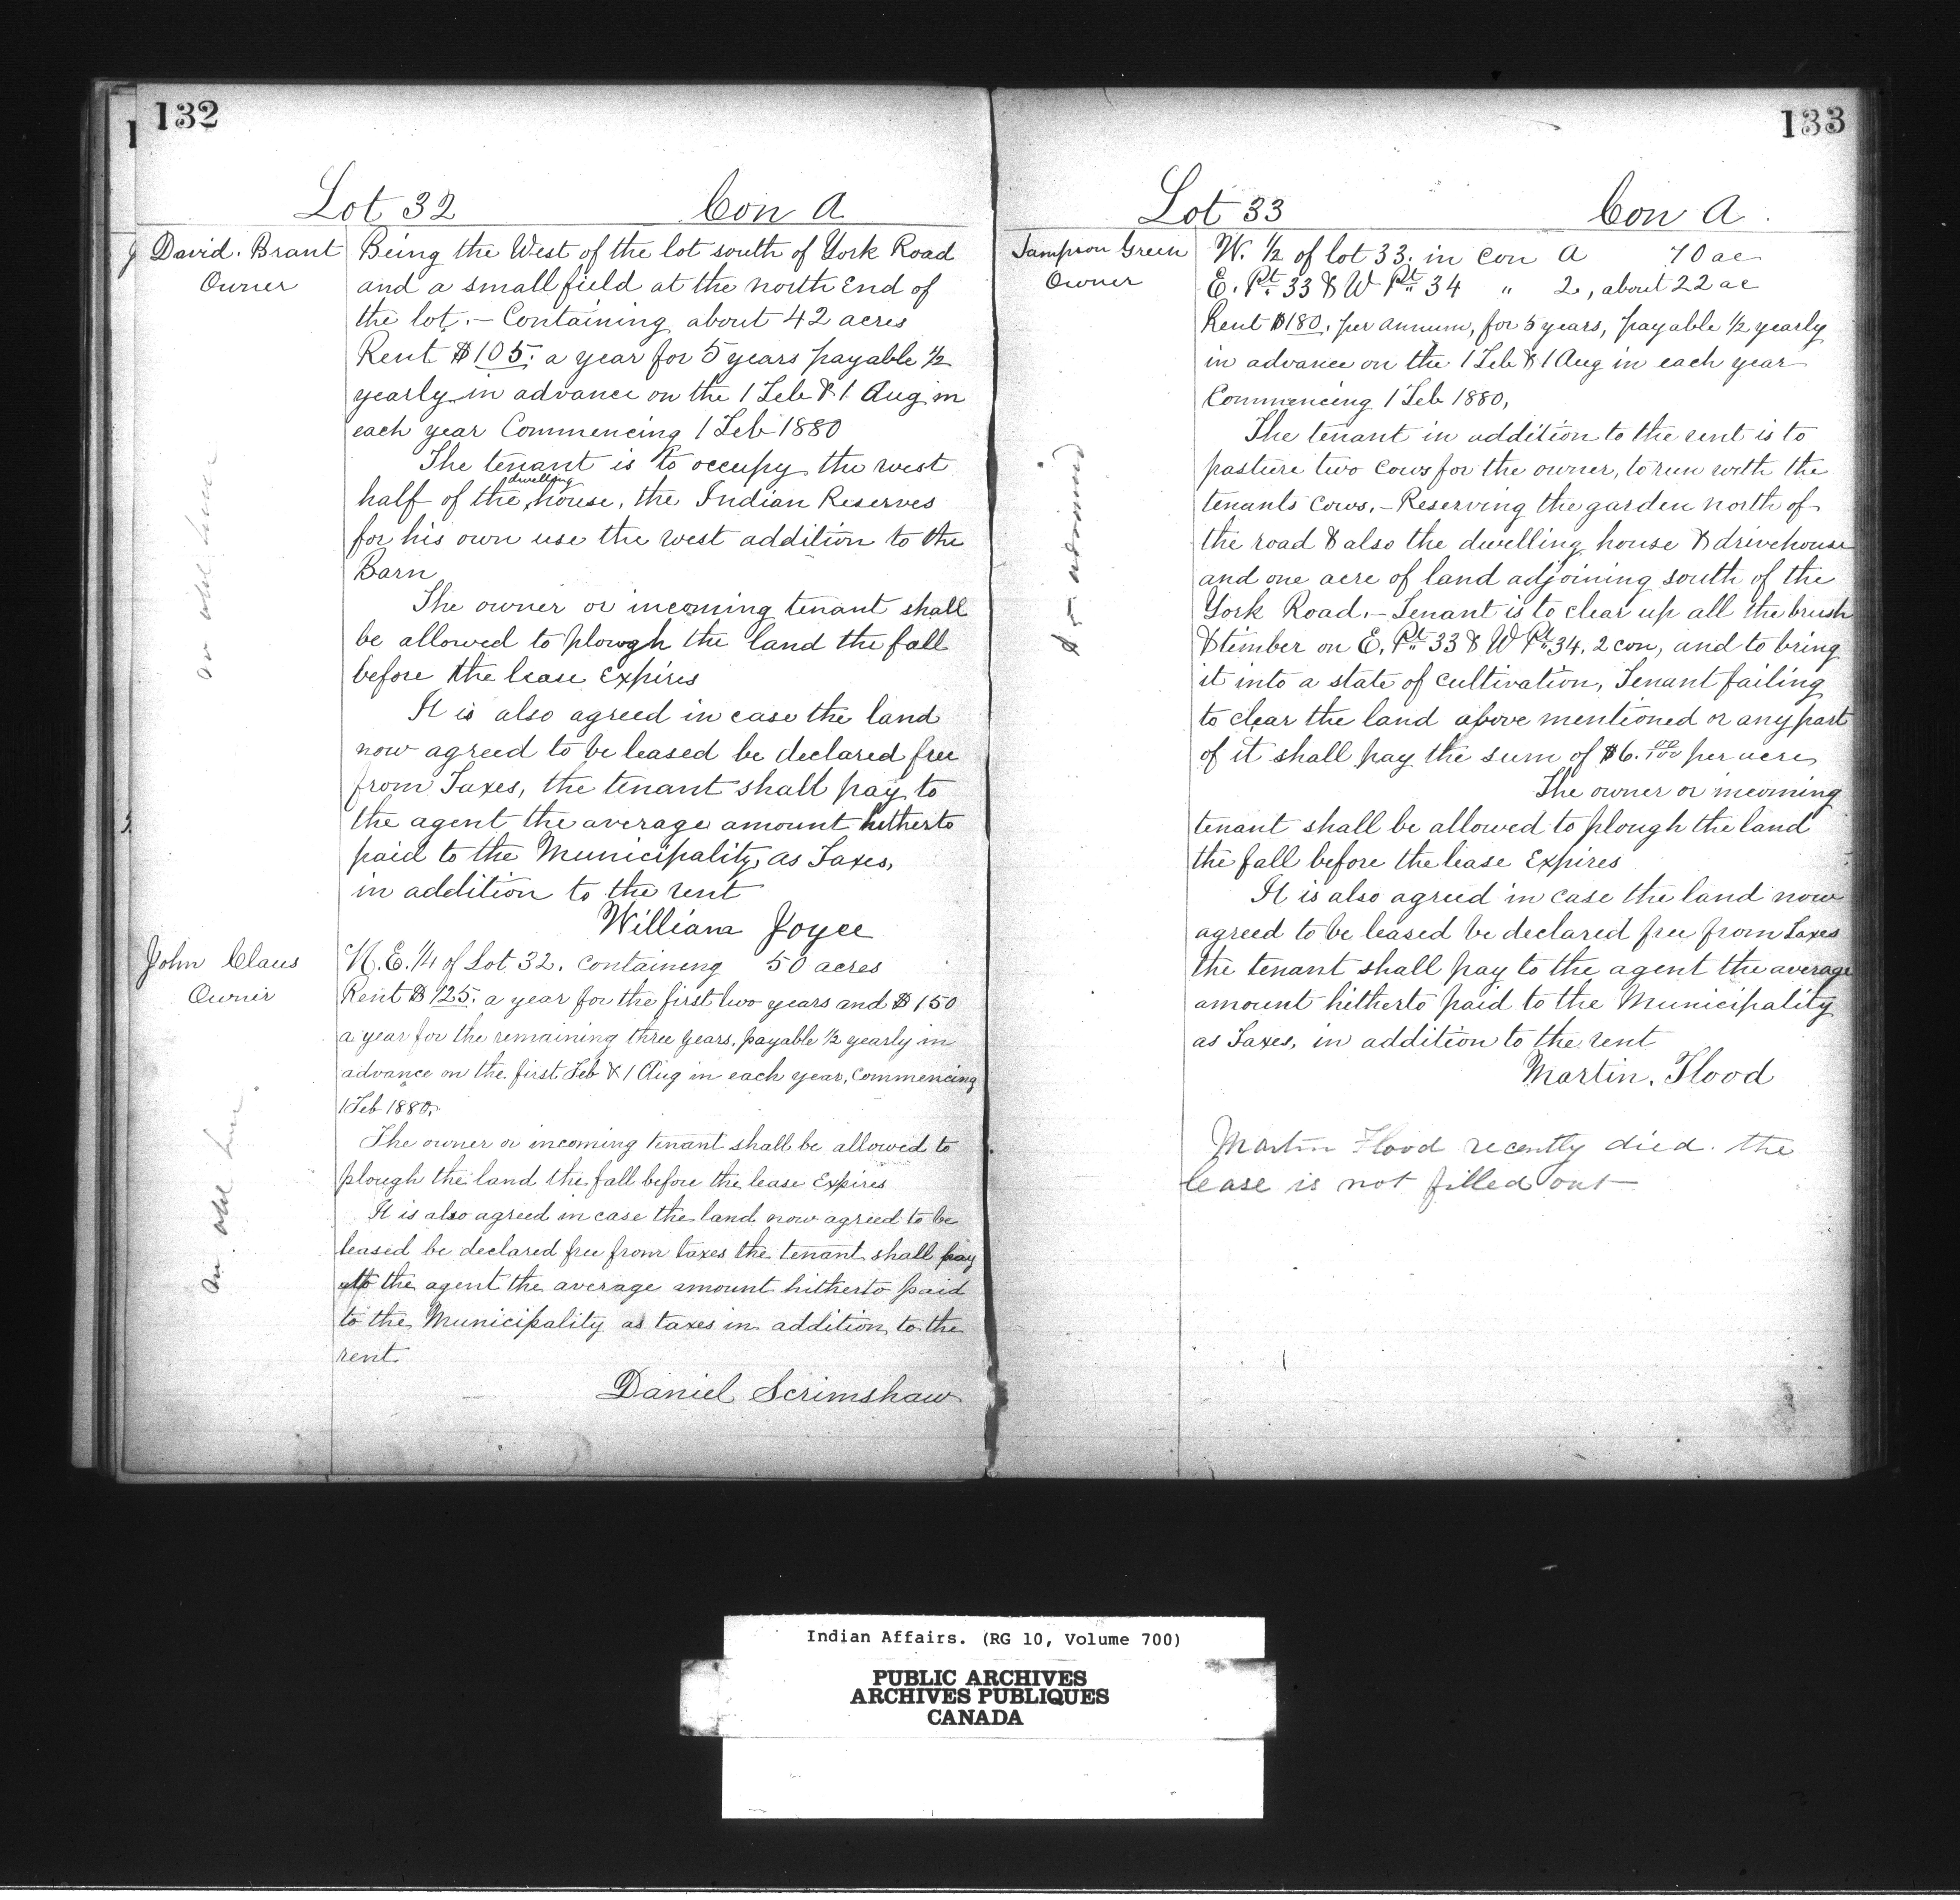 132
Lot 32 Con A
David. Brant
Owner
Being the West of the lot south of York Road
and a small field at the north End of
the lot. — Containing about 42 acres
Rent $105. a year for 5 years payable ½
yearly in advance on the 1 Feb & 1 Aug in
each year Commencing 1 Feb 1880
The tenant is to occupy the west
half of the dwelling house, the Indian Reserves
for his own use the west addition to the
Barn
The owner or incoming tenant shall
be allowed to plough the land the fall
before the lease Expires
It is also agreed in case the land
now agreed to be leased be declared free
from Taxes, the tenant shall pay to
the agent the average amount hitherto
paid to the Municipality as Taxes,
in addition to the rent
William Joyce
John Claus
Owner
N. E. ¼ of Lot 32. containing 50 acres
Rent $125. a year for the first two years and $150
a year for the remaining three years, payable ½ yearly in
advance on the first Feb & 1 Aug in each year, commencing
1 Feb 1880.
The owner or incoming tenant shall be allowed to
plough the land the fall before the lease Expires
It is also agreed in case the land now agreed to be
leased be declared free from taxes the tenant shall pay
to the agent the average amount hitherto paid
to the Municipality as taxes in addition to the
rent
Daniel Scrimshaw
133
Lot 33 Con A.
Sampson Green
Owner
W. ½ of lot 33. in con A 70 ac
E. Pt. 33 & W Pt. 34 " 2, about 22 ac
Rent $180. per annum, for 5 years, payable ½ yearly
in advance on the 1 Feb & 1 Aug in each year
Commencing 1 Feb 1880,
The tenant in addition to the rent is to
pasture two cows for the owner, to run with the
tenants cows, — Reserving the garden north of
the road & also the dwelling house & drivehouse
and one acre of land adjoining south of the
York Road. — Tenant is to clear up all the brush
& timber on E. Pt. 33 & W Pt. 34. 2 con, and to bring
it into a state of cultivation, Tenant failing
to clear the land above mentioned or any part
of it shall pay the sum of $6. 00/100 per acre
The owner or incoming
tenant shall be allowed to plough the land
the fall before the lease Expires
It is also agreed in case the land now
agreed to be leased be declared free from Taxes
the tenant shall pay to the agent the average
amount hitherto paid to the Municipality
as Taxes, in addition to the rent
Martin. Flood
Martin Flood recently died. the
lease is not filled out
Indian Affairs. (RG 10, Volume 700)
PUBLIC ARCHIVES
ARCHIVES PUBLIQUES
CANADA